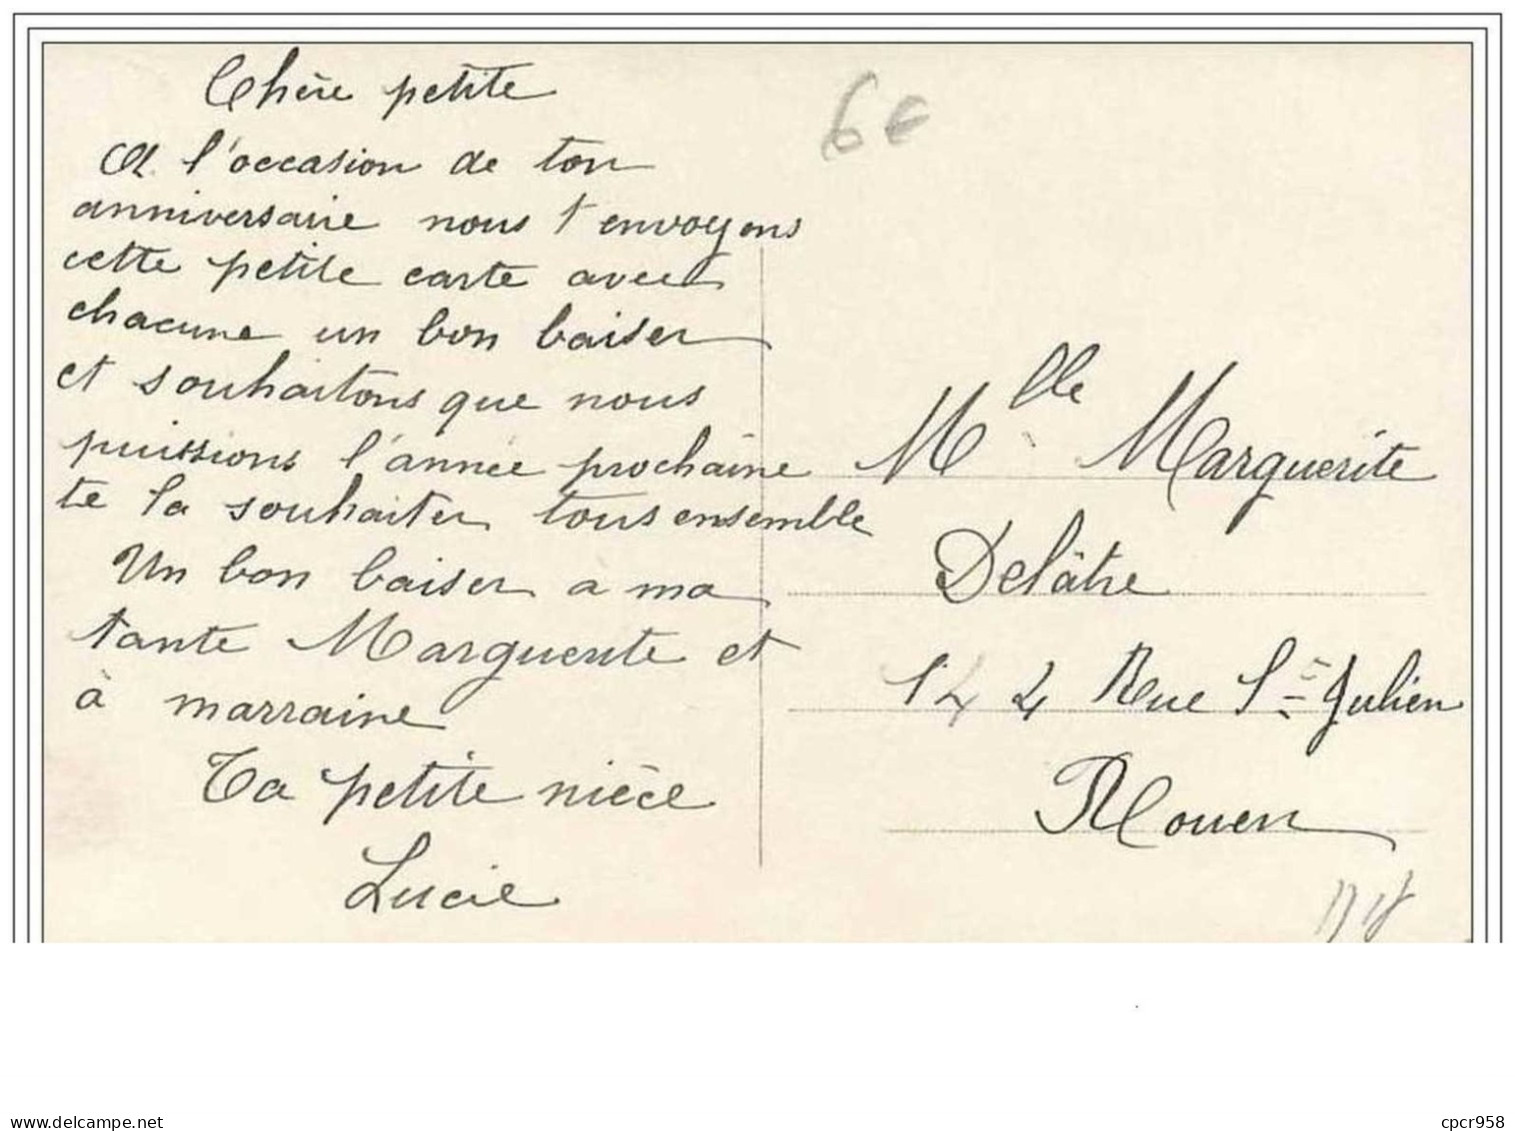 Chère petite
A l'occasion de ton
anniversaire nous t'envoyons
cette petite carte avec
chacune un bon baiser
et souhaitons que nous
puissions l'année prochaine
te la souhaiter tous ensemble
Un bon baiser a ma
tante Marguerite et
à marraine
Ta petite nièce
Lucie
6€
Mlle Marguerite
Delâtre
144 Rue St Julien
Rouen
www.delcampe.net
cpcr958